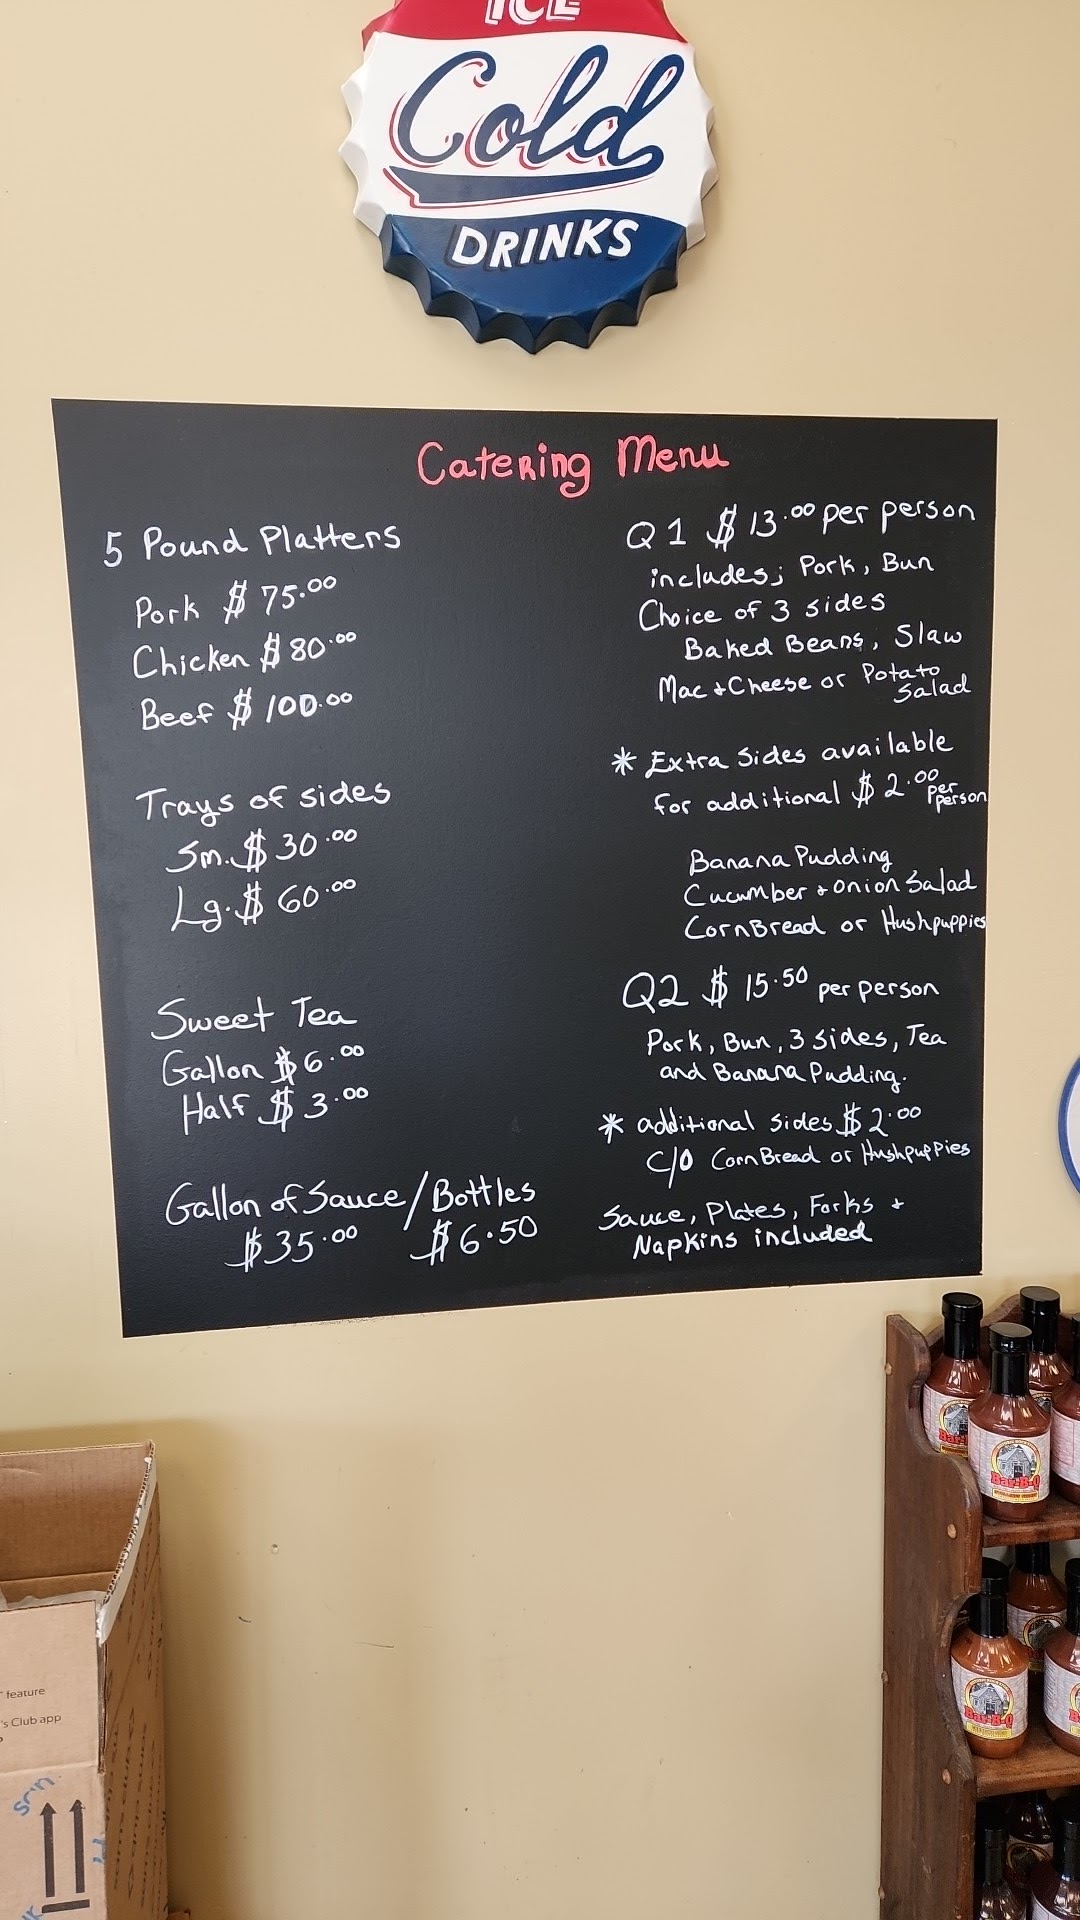 ICE
Cold
DRINKS
Catering Menu
5 Pound Platters
Pork $ 75.00
Chicken $ 80.00
Beef $ 100.00
Trays of sides
Sm. $ 30.00
Lg. $ 60.00
Sweet Tea
Gallon $ 6.00
Half $ 3.00
Gallon of Sauce/Bottles
$ 35.00 $ 6.50
Q1 $ 13.00 per person
includes; Pork, Bun
Choice of 3 sides
Baked Beans, Slaw
Mac + Cheese or Potato
Salad
* Extra sides available
for additional $ 2.00 per
person
Banana Pudding
Cucumber + onion Salad
CornBread or Hushpuppies
Q2 $ 15.50 per person
Pork, Bun, 3 sides, Tea
and Banana Pudding.
* additional sides $ 2.00
C/O CornBread or Hushpuppies
Sauce, Plates, Forks +
Napkins included
Bar-B-Q
Bar-B-Q
Bar-B-Q
feature
's Club app